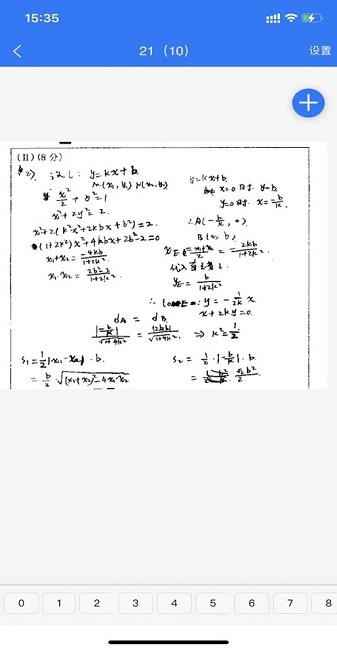 15:35
21（10）
设置
(II)(8分)
设 l: y=kx+b
M(x₁, y₁) N(x₂, y₂)
x²/2 + y² = 1
x²+2y²=2.
x²+2(k²x²+2kbx+b²)=2.
(1+2k²)x²+4kbx+2b²-2=0
x₁+x₂ = -4kb/1+2k²
x₁·x₂ = 2b²-2/1+2k²
y=kx+b.
x=0时. y=b.
y=0时. x=-b/k.
∴A(-b/k, 0)
B(0, b)
x_E = x₁+x₂/2 = -2kb/1+2k².
y_E = b/1+2k²
y = -1/2k x
x+2ky=0.
d_A = d_B
⇒ k²=1/2
S₁=1/2|x₁-x₂|·b.
= b/2·√(x₁+x₂)²-4x₁x₂
S₂ = 1/2·|-b/k|·b.
0 1 2 3 4 5 6 7 8